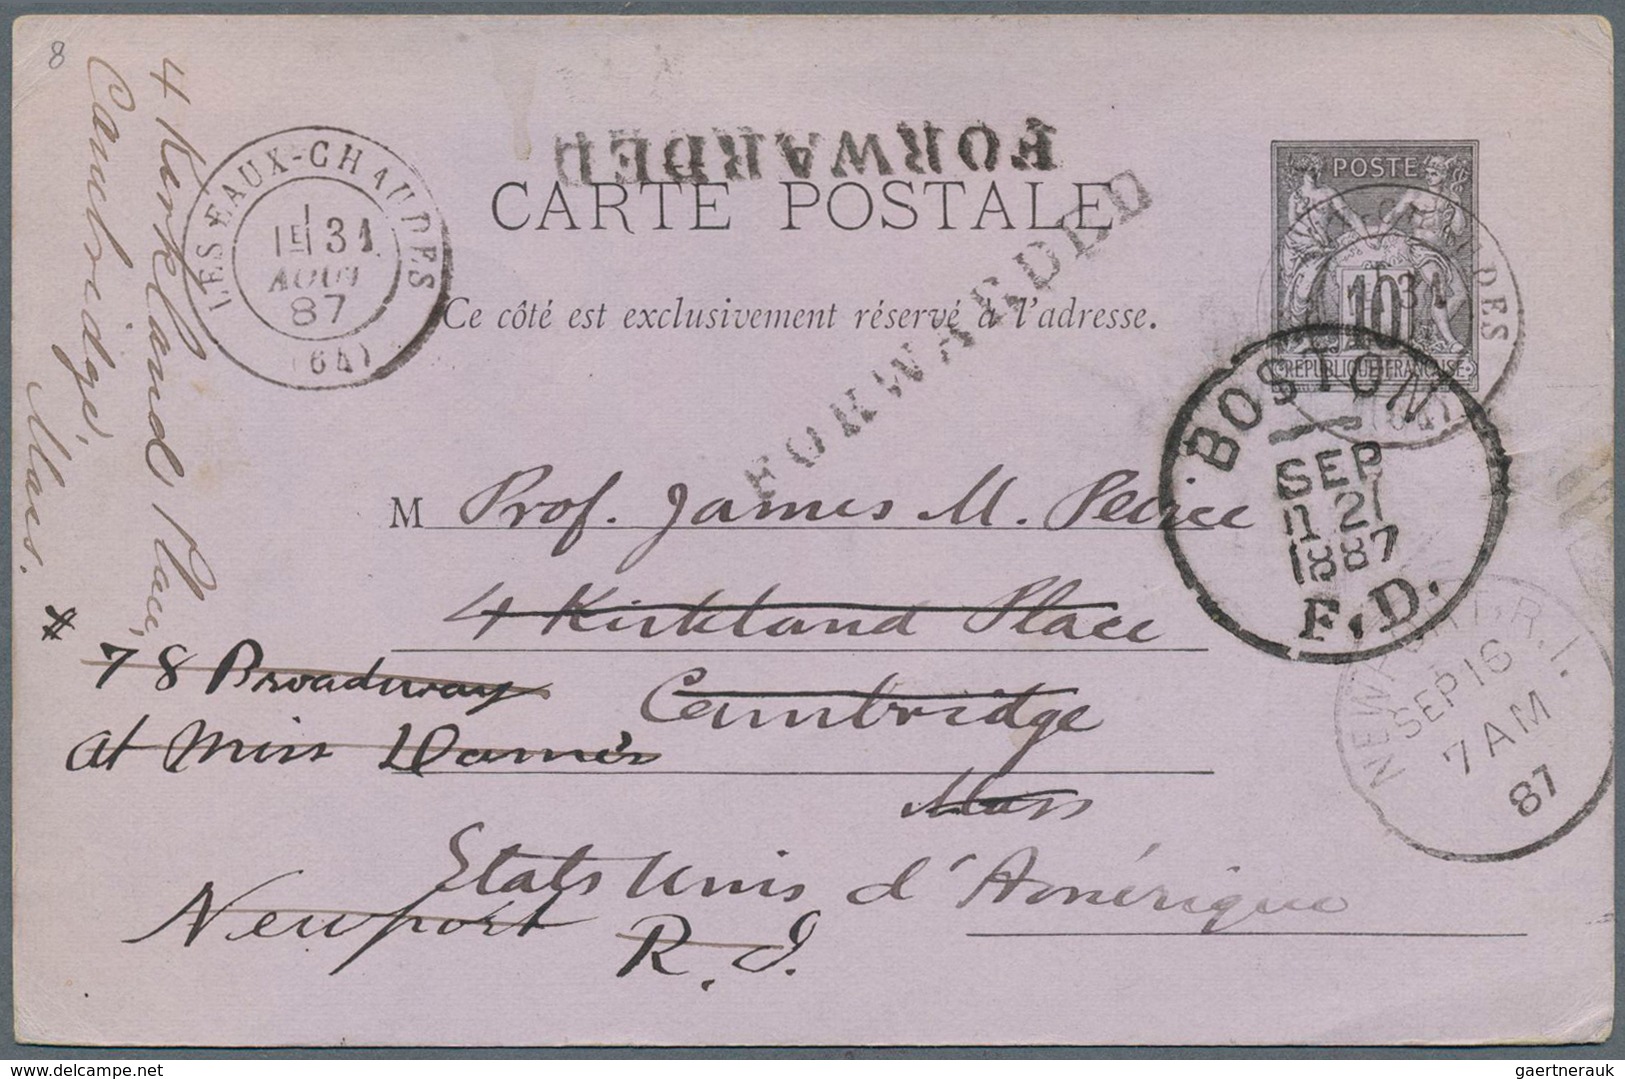 8
FORWARDED
CARTE POSTALE
Ce côté est exclusivement réservé à l'adresse.
FORWARDED
POSTE
10
RÉPUBLIQUE FRANÇAISE
LES EAUX-CHAUDES
1E 31
AOUT
87
(64)
31
DES
BOSTON
SEP
21
1887
F.D.
NEWPORT, R.I.
SEP 16
7 AM
87
M Prof. James M. Peirce
4 Kirkland Place
Cambridge
Mass
Etats Unis d'Amérique
78 Broadway
at Miss
Newport
R. I.
4 Kirkland Place,
Cambridge,
Mass.
delcampe.net
gaertnerauk